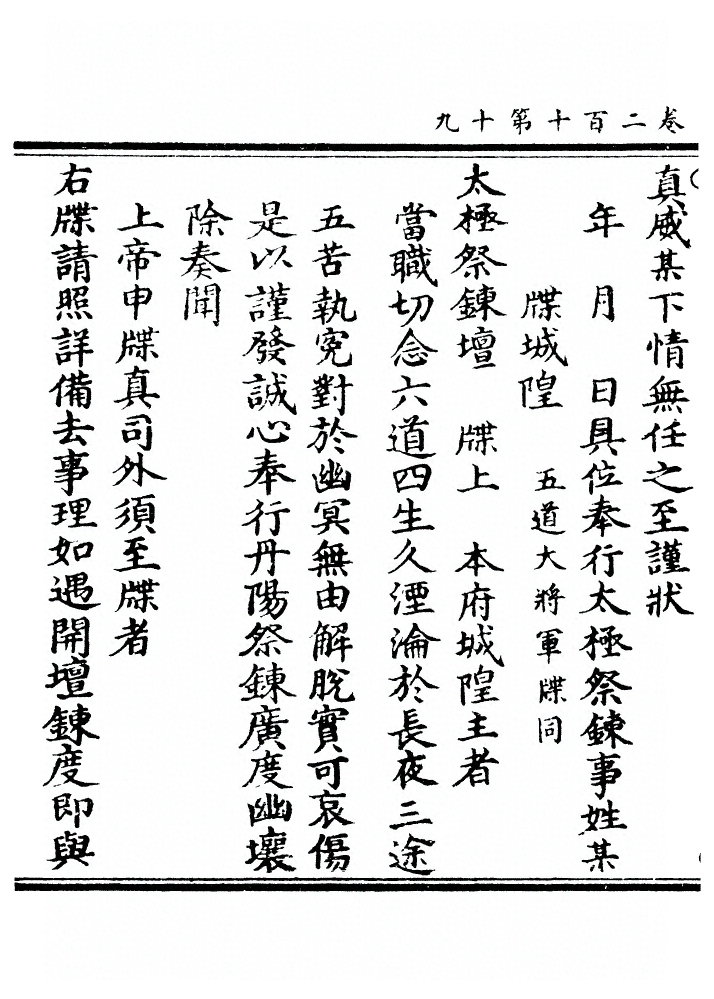 卷二百十第十九
真威某下情無任之至謹狀
年　月　日具位奉行太極祭鍊事姓某
牒城隍　五道大將軍牒同
太極祭鍊壇　牒上　本府城隍主者
當職切念六道四生久湮淪於長夜三途
五苦執寃對於幽冥無由解脫實可哀傷
是以謹發誠心奉行丹陽祭鍊廣度幽壤
除奏聞
上帝申牒真司外須至牒者
右牒請照詳備去事理如遇開壇鍊度即與